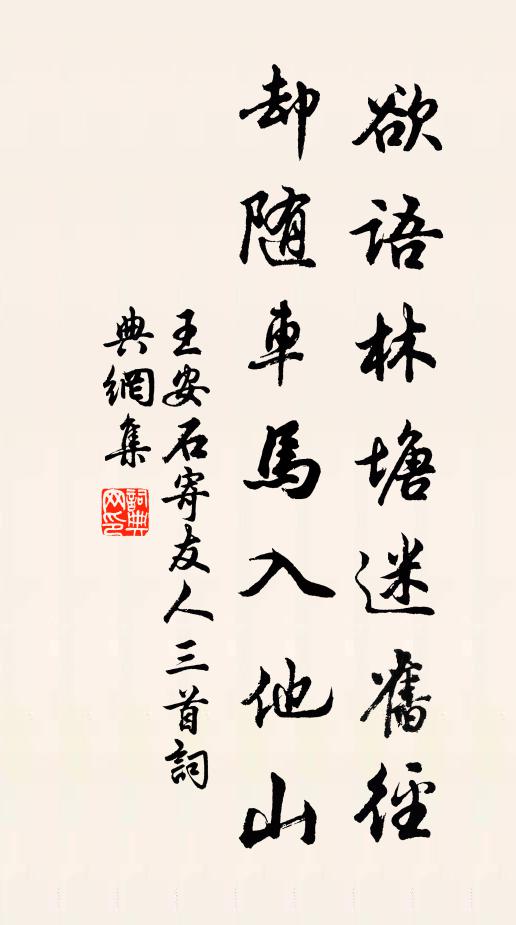 欲語林塘迷舊徑
却随車馬入他山
王安石寄友人三首詞
典網集
詞典网印